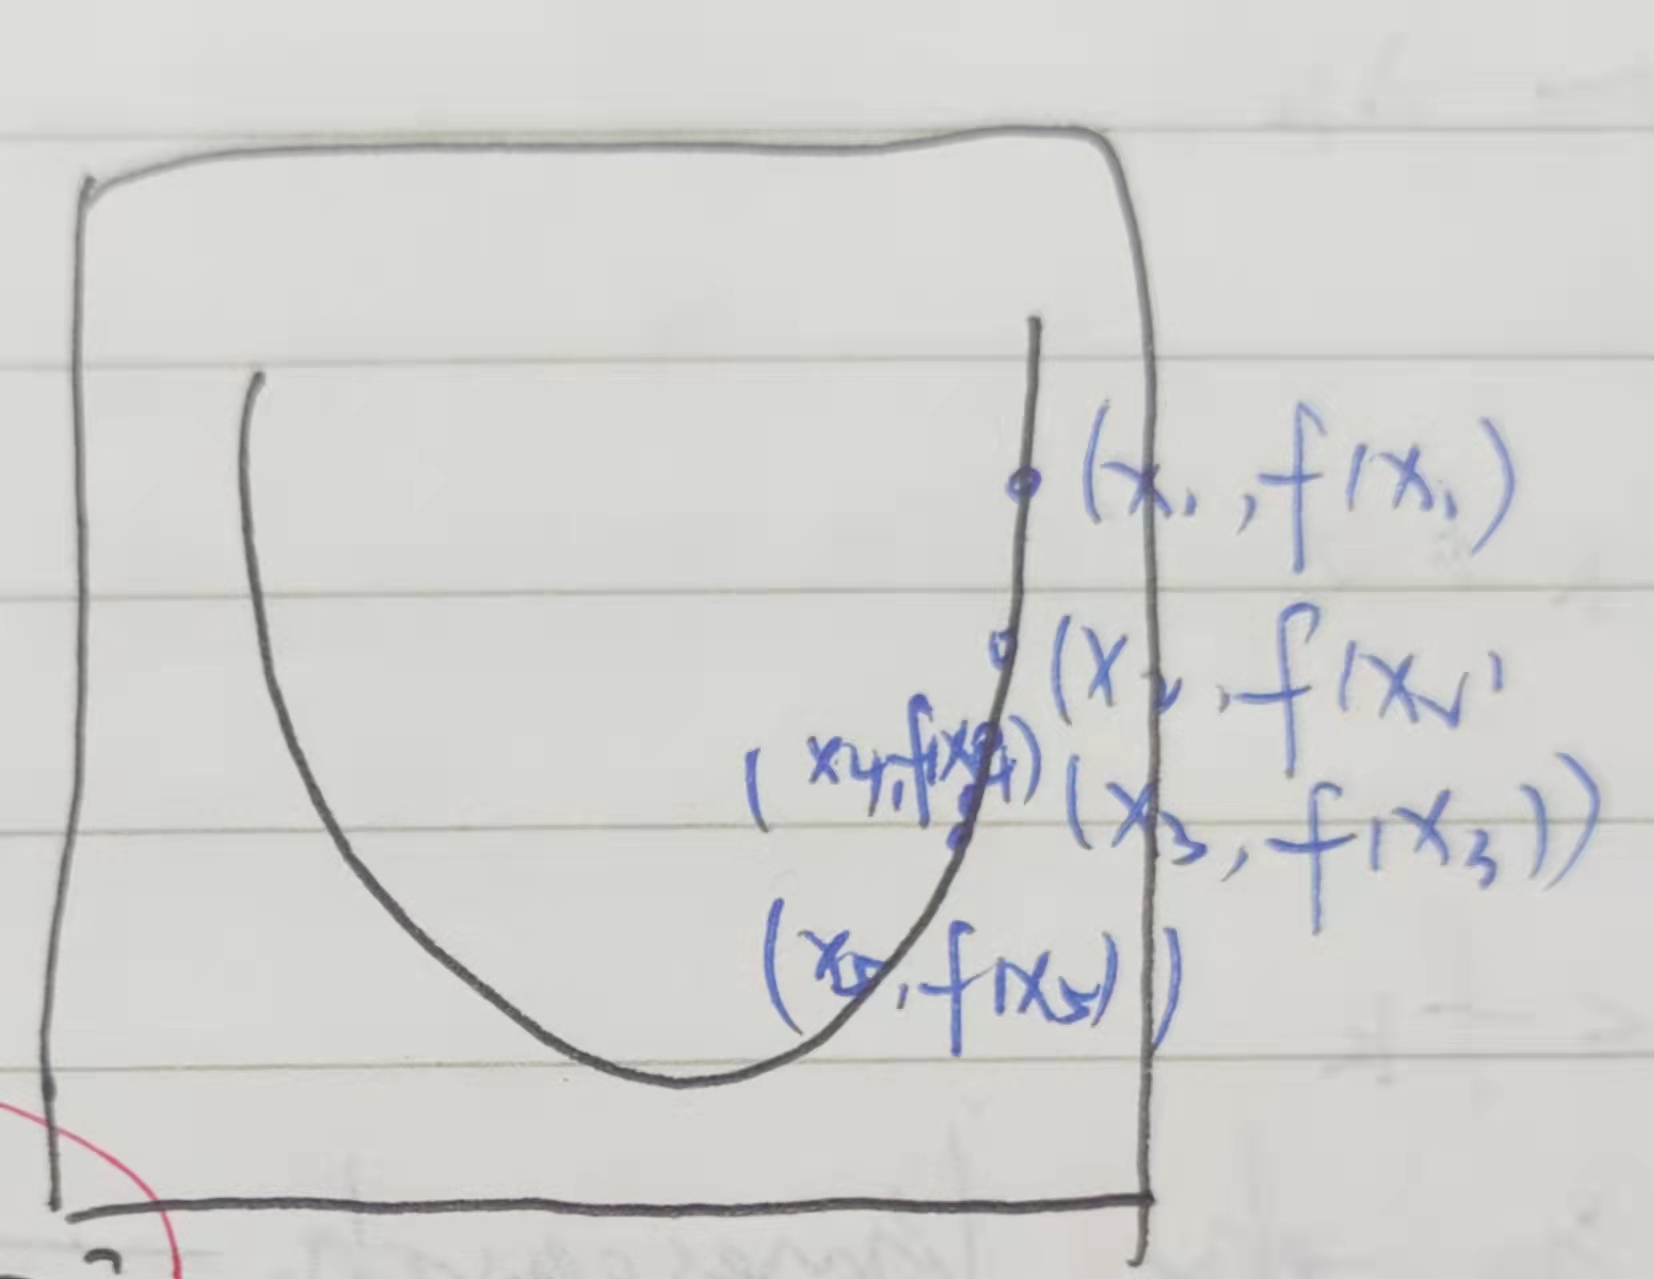 (x₁, f(x₁)
(x₂, f(x₂)
(x₄, f(x₄)
(x₃, f(x₃))
(x₅, f(x₅))